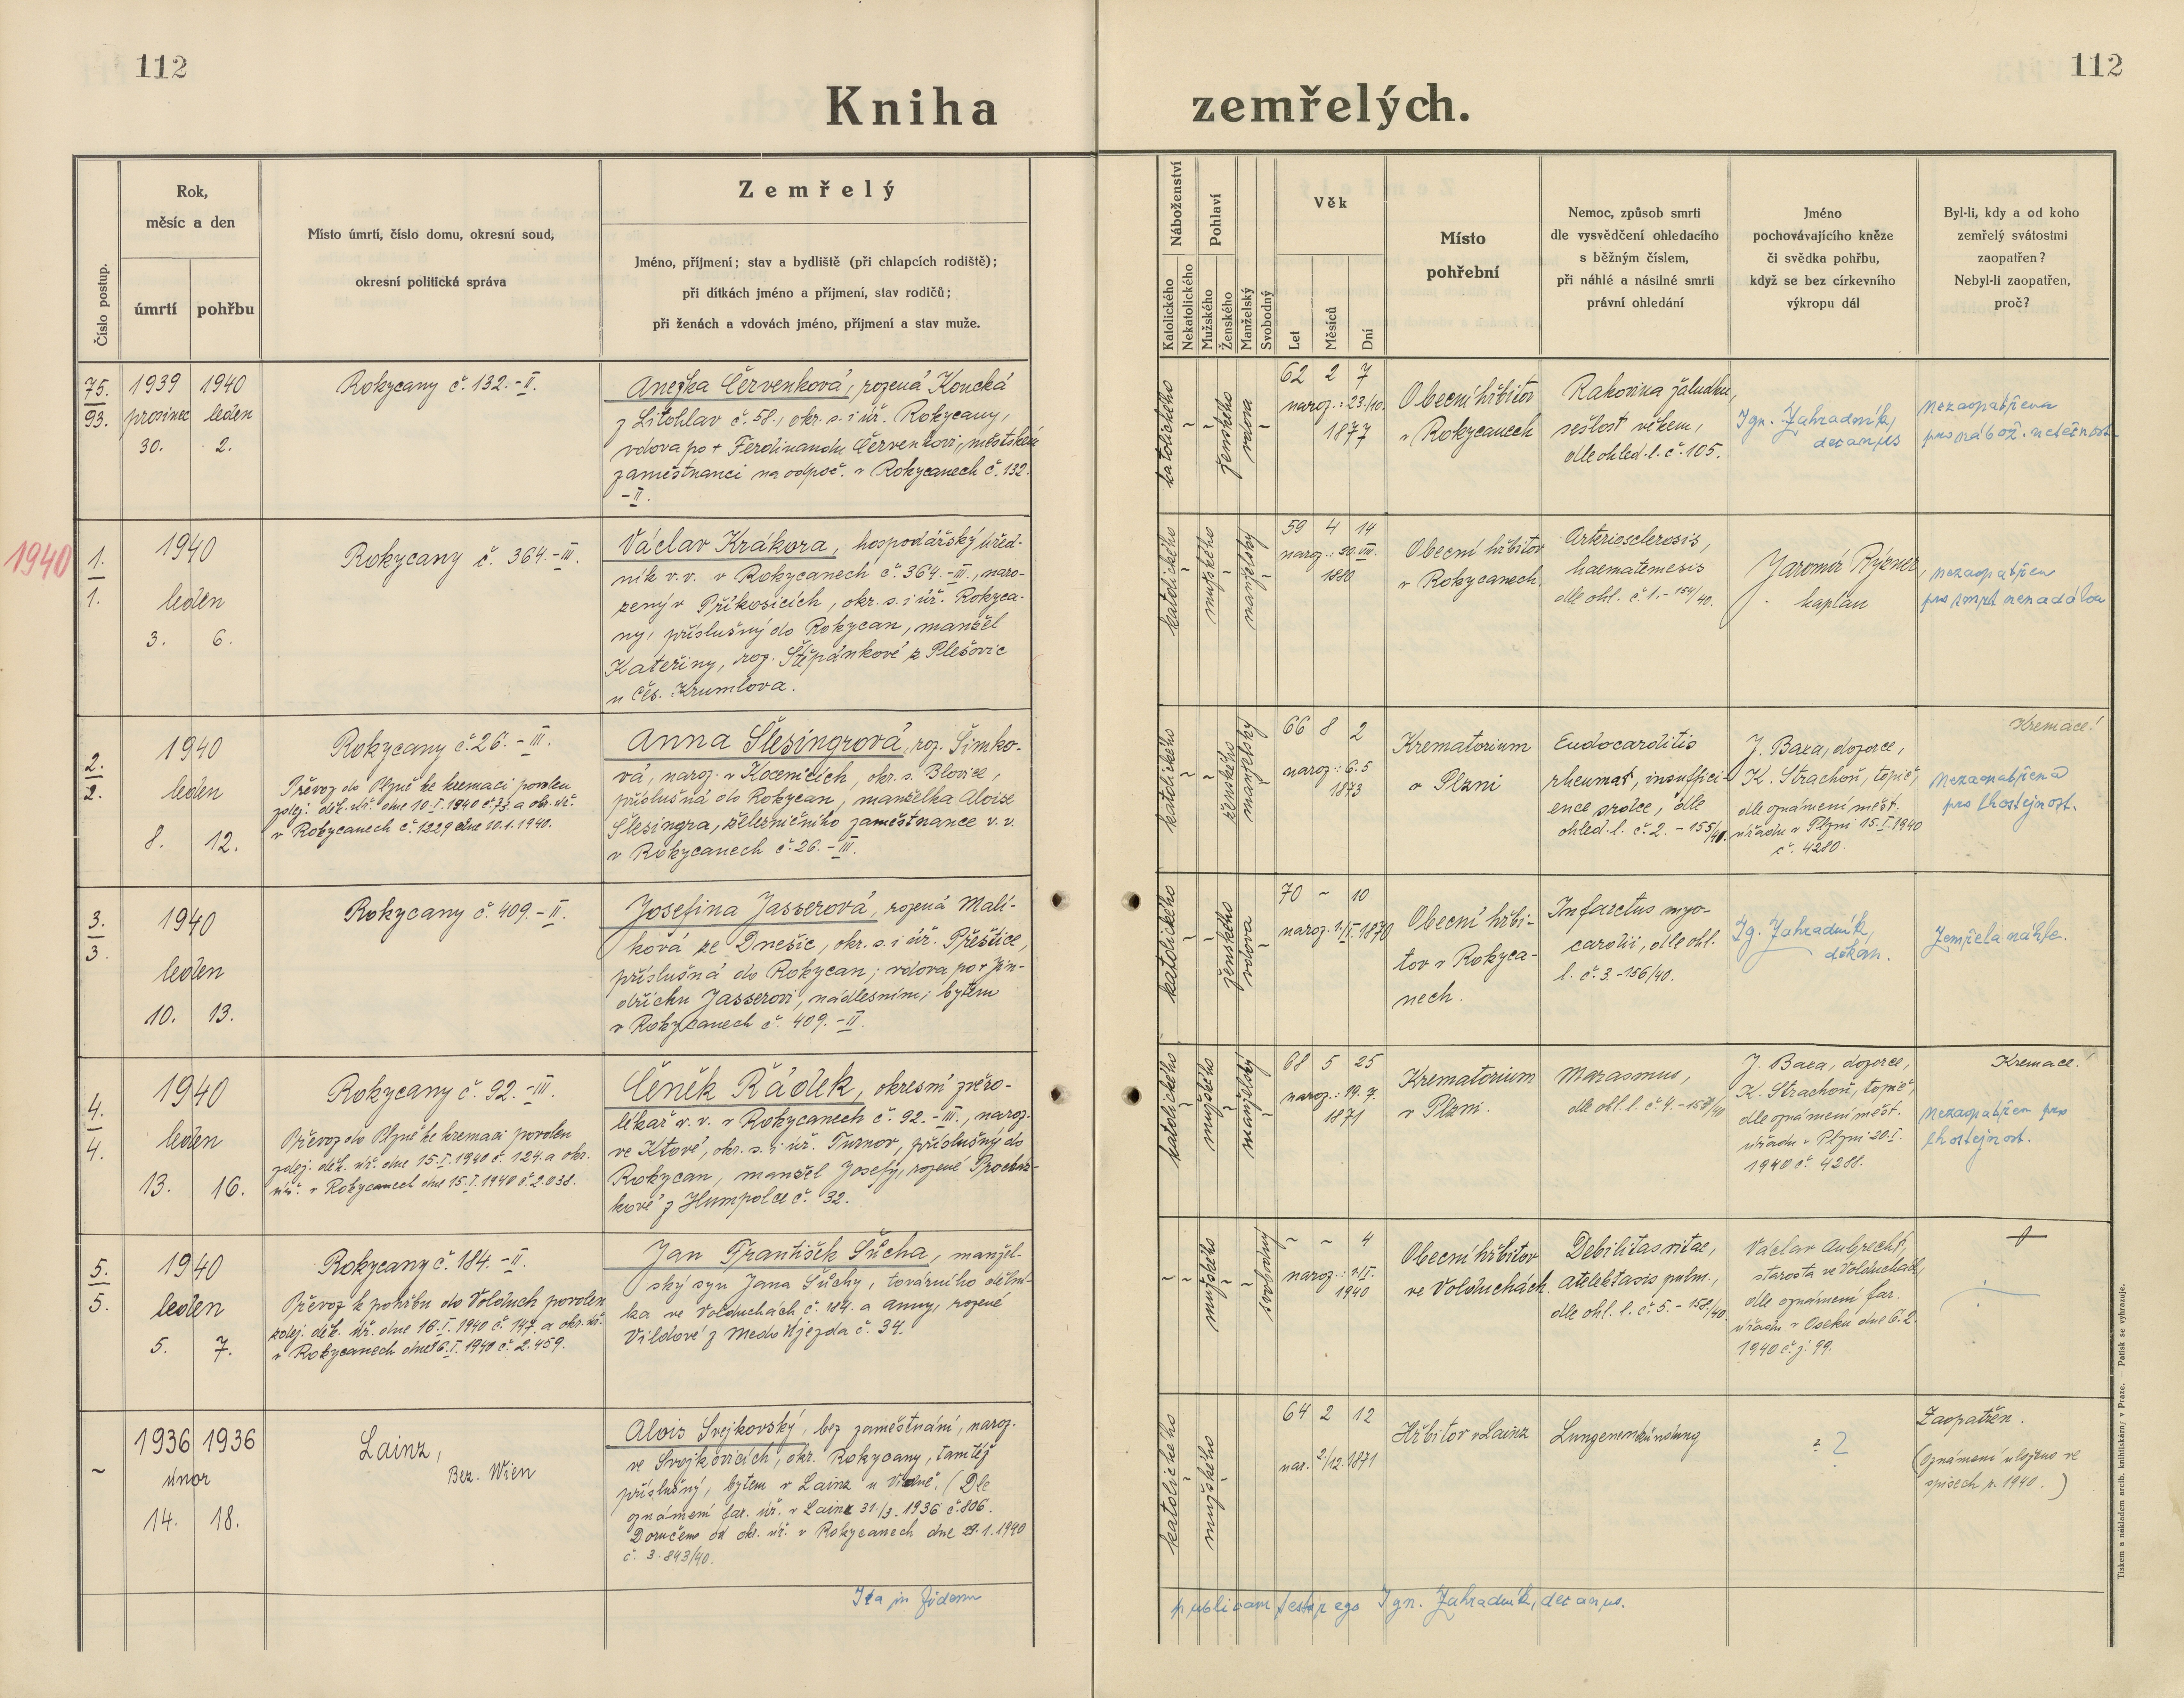 112
112
Kniha zemřelých.
Číslo postup.
Rok,
měsíc a den
úmrtí
pohřbu
Místo úmrtí, číslo domu, okresní soud,
okresní politická správa
Zemřelý
Jméno, příjmení; stav a bydliště (při chlapcích rodiště);
při dítkách jméno a příjmení, stav rodičů;
při ženách a vdovách jméno, příjmení a stav muže.
Náboženství
Katolického
Nekatolického
Pohlaví
Mužského
Ženského
Manželský
Svobodný
Věk
Let
Měsíců
Dní
Místo
pohřební
Nemoc, způsob smrti
dle vysvědčení ohledacího
s běžným číslem,
při náhlé a násilné smrti
právní ohledání
Jméno
pochovávajícího kněze
či svědka pohřbu,
když se bez církevního
výkropu dál
Byl-li, kdy a od koho
zemřelý svátostmi
zaopatřen?
Nebyl-li zaopatřen,
proč?
75.
93.
1939 1940
prosinec leden
30. 2.
Rokycany č. 132.-II.
Anežka Červenková, rozená Koucká
z Litohlav č. 58., okr. s. i úř. Rokycany,
vdova po + Ferdinandu Červenkovi, městském
zaměstnanci na odpoč. v Rokycanech č. 132.
-II.
katolického
~
~
ženského
vdova
~
62 2 7
naroz.: 23./10.
1877
Obecní hřbitov
v Rokycanech
Rakovina žaludku,
sešlost věkem,
dle ohled. l. č. 105.
Ign. Zahradník,
decanus
nezaopatřena
pro nábož. netečnost
1940
1.
1.
1940
leden
3. 6.
Rokycany č. 364.-III.
Václav Krákora, hospodářský úřed-
ník v.v. v Rokycanech č. 364.-III., naro-
zený v Příkosicích, okr. s. i úř. Rokyca-
ny, příslušný do Rokycan, manžel
Kateřiny, roz. Štěpánkové z Plešovic
u Čes. Krumlova.
katolického
~
mužského
~
manželský
~
59 4 14
naroz.: 20. VIII.
1880
Obecní hřbitov
v Rokycanech
Arteriosclerosis,
haematemesis
dle ohl. č. 1.-154/40.
Jaromír Rýzner,
kaplan
nezaopatřen
pro smrt nenadálou
2.
2.
1940
leden
8. 12.
Rokycany č. 26.-III.
Převoz do Plzně ke kremaci povolen
zdej. děk. úř. dne 10.I.1940 č. 73 a ok. úř.
v Rokycanech č. 1229 dne 10.1.1940.
Anna Šlesingrová, roz. Šimko-
vá, naroz. v Kocenicích, okr. s. Blovice,
příslušná do Rokycan, manželka Aloise
Šlesingra, železničního zaměstnance v. v.
v Rokycanech č. 26.-III.
katolického
~
~
ženského
manželský
66 8 2
naroz.: 6.5
1873
Krematorium
v Plzni
Endocarditis
rheumat., insuffici-
ence srdce, dle
ohled. l. č. 2.-155/40.
J. Baxa, dozorce,
K. Strachoň, topič,
dle oznámení měst.
úřadu v Plzni 15.I.1940
č. 4280.
Kremace!
nezaopatřena
pro lhostejnost.
3.
3.
1940
leden
10. 13.
Rokycany č. 409.-II.
Josefina Jasserová, rozená Malí-
ková ze Dnešic, okr. s. i úř. Přeštice,
příslušná do Rokycan; vdova po + Jin-
dřichu Jasserovi, nádlesním; bytem
v Rokycanech č. 409.-II.
katolického
~
~
ženského
vdova
~
70 ~ 10
naroz. 1./I. 1870
Obecní hřbi-
tov v Rokyca-
nech.
Infarctus myo-
cardii, dle ohl.
l. č. 3.-156/40.
Ig. Zahradník,
děkan.
Zemřela náhle.
4.
4.
1940
leden
13. 16.
Rokycany č. 92.-III.
Převoz do Plzně ke kremaci povolen
zdej. děk. úř. dne 15.I.1940 č. 124. a okr.
úř. v Rokycanech dne 15.I.1940 č. 2.038.
Čeněk Řádek, okresní zvěro-
lékař v. v. v Rokycanech č. 92.-III., naroz.
ve Ktové, okr. s. i úř. Turnov, příslušný do
Rokycan, manžel Josefy, rozené Procház-
kové z Humpolce č. 32.
katolického
~
mužského
~
manželský
~
68 5 25
naroz.: 19. 7.
1871
Krematorium
v Plzni.
Marasmus,
dle ohl. l. č. 4.-157/40
J. Baxa, dozorce,
K. Strachoň, topič,
dle oznámení měst.
úřadu v Plzni 20.I.
1940 č. 4288.
Kremace!
nezaopatřen pro
lhostejnost.
5.
5.
1940
leden
5. 7.
Rokycany č. 184.-II.
Převoz k pohřbu do Volduch povolen
zdej. děk. úř. dne 16.I.1940 č. 147. a okr. úř.
v Rokycanech dne 16.I.1940 č. 2.459.
Jan František Šůcha, manžel-
ský syn Jana Šůchy, továrního dělní-
ka ve Volduchách č. 184. a Anny, rozené
Vildové z Medo Újezda č. 34.
~
~
mužského
~
~
svobodný
~ ~ 4
naroz.: 1./I.
1940
Obecní hřbitov
ve Volduchách
Debilitas vitae,
atelektasis pulm.,
dle ohl. l. č. 5.-158/40.
Václav Aubrecht,
starosta ve Volduchách,
dle oznámení far.
úřadu v Oseku dne 6.2.
1940 č.j. 99.
~
1936 1936
únor
14. 18.
Lainz,
Bez. Wien
Alois Svejkovský, bez zaměstnání, naroz.
ve Svojkovicích, okr. Rokycany, tamtéž
příslušný, bytem v Lainz u Vídně. (Dle
oznámení far. úř. v Lainz 31./3. 1936 č. 806.
Doručeno od ok. úř. v Rokycanech dne 29.1.1940
č. 3.843/40.
katolického
~
mužského
~
64 2 12
nar. 2/12 1871
Hřbitov v Lainz
Lungenentzündung
? ?
Zaopatřen.
(Oznámení uloženo ve
spisech r. 1940.)
Ita in fidem publicam testor ego Ign. Zahradník, decanus.
Tiskem a nákladem arcib. knihtiskárny v Praze. — Patisk se vyhrazuje.